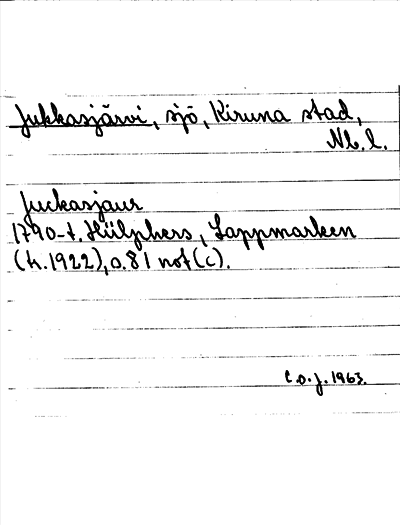 Jukkasjärvi, sjö, Kiruna stad,
Nb. l.
Juckasjaur
1790-t. Hülphers, Lappmarken
(h. 1922), s. 81 not (c).
C.O.J. 1963.